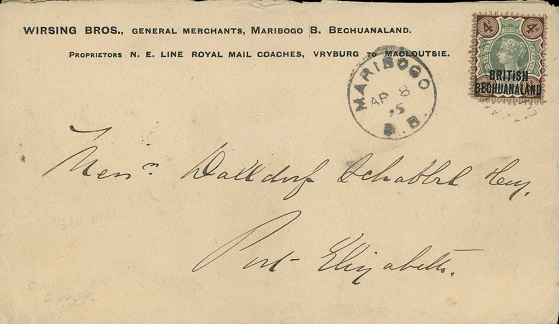 WIRSING BROS., GENERAL MERCHANTS, MARIBOGO B. BECHUANALAND.
PROPRIETORS N. E. LINE ROYAL MAIL COACHES, VRYBURG TO MACLOUTSIE.
4d 4d
BRITISH
BECHUANALAND
MARIBOGO
AP 8
95
B.B.
Messrs Dalldorf Schabbel
Port Elizabeth.